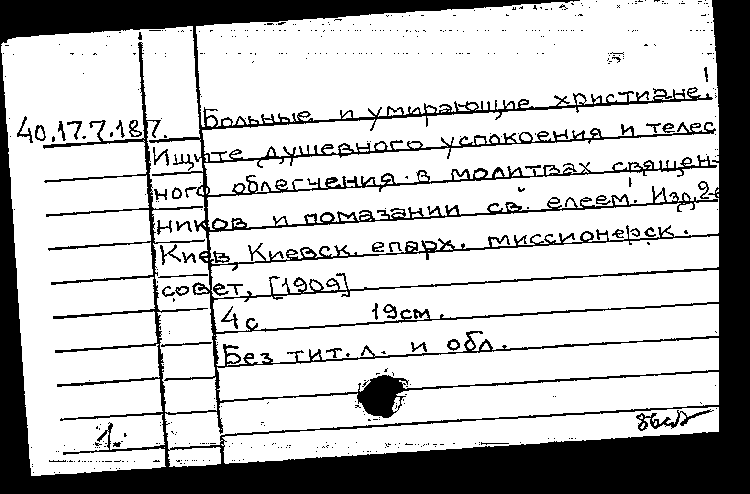 Больные и умирающие христиане!
40.17.7.187.
Ищите душевного успокоения и телес
ного облегчения в молитвах священ-
ников и помазании св. елеем! Изд. 2-е
Киев, Киевск. епарх. миссионерск.
совет, [1909]
4с 19см.
Без тит. л. и обл.
1.